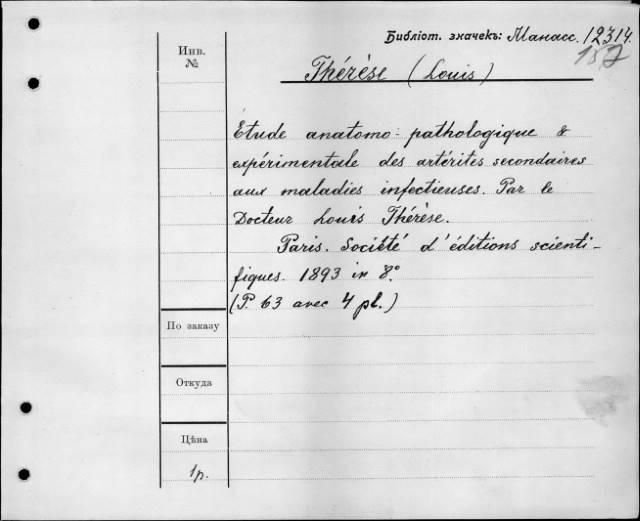 Библіот. значекъ: Манасс. 12314
Инв.
№
Thérèse (Louis)
Etude anatomo-pathologique &
expérimentale des artérites secondaires
aux maladies infectieuses. Par le
Docteur Louis Thérèse.
Paris. Société d'éditions scienti-
fiques. 1893 in 8º
(P. 63 avec 4 pl.)
По заказу
Откуда
Цѣна
1р.